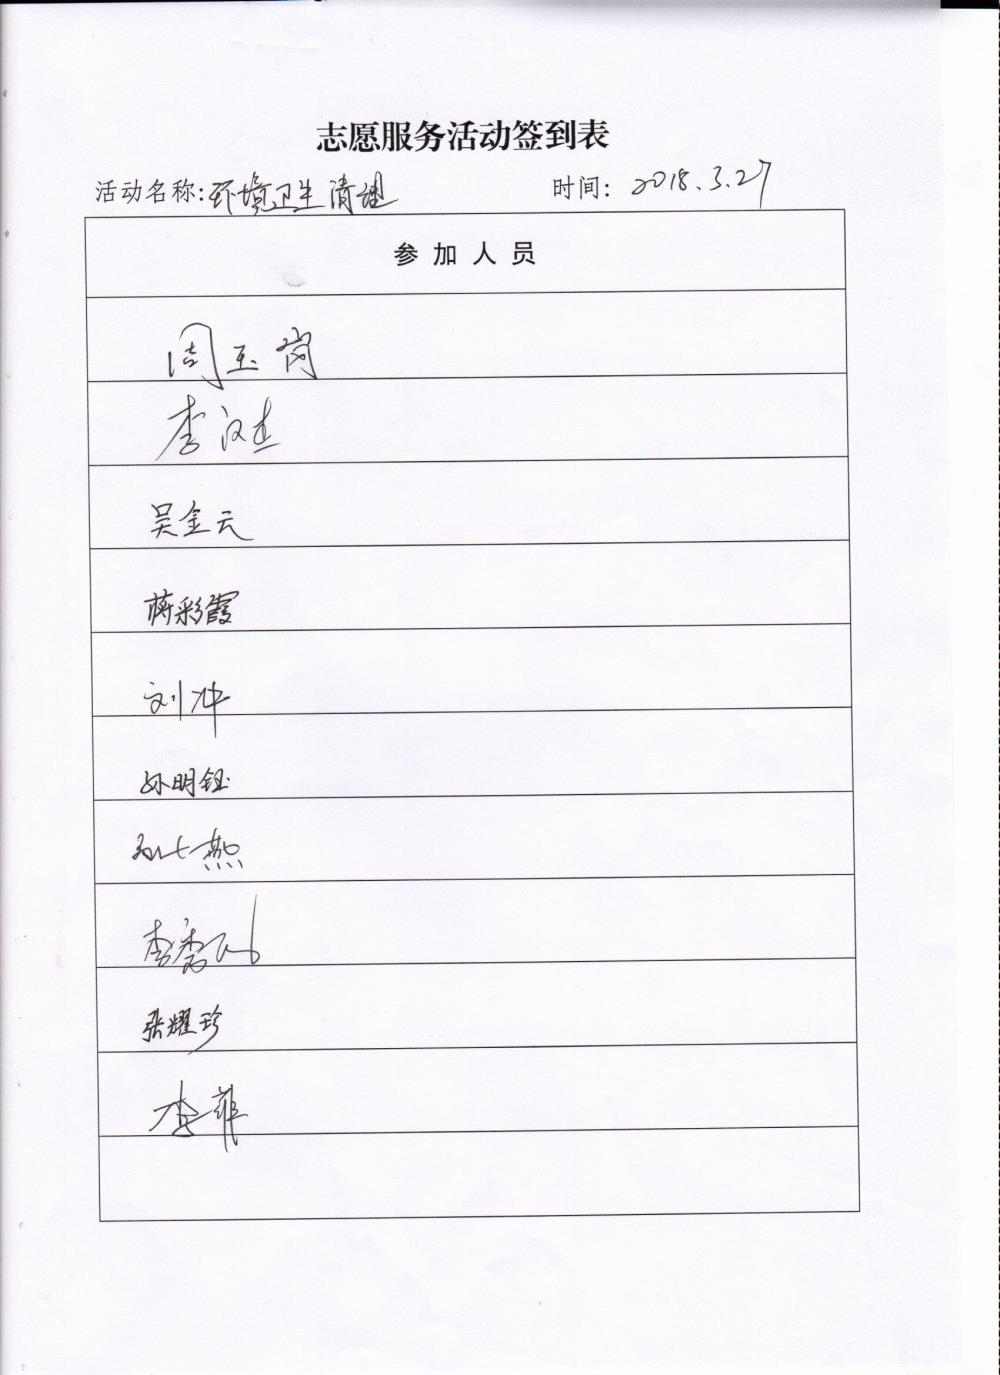 志愿服务活动签到表
活动名称:环境卫生清理 时间: 2018.3.27
参加人员
周玉岗
李汉杰
吴金云
蒋彩霞
刘冲
孙明钰
燕
李秀
张耀珍
李菲